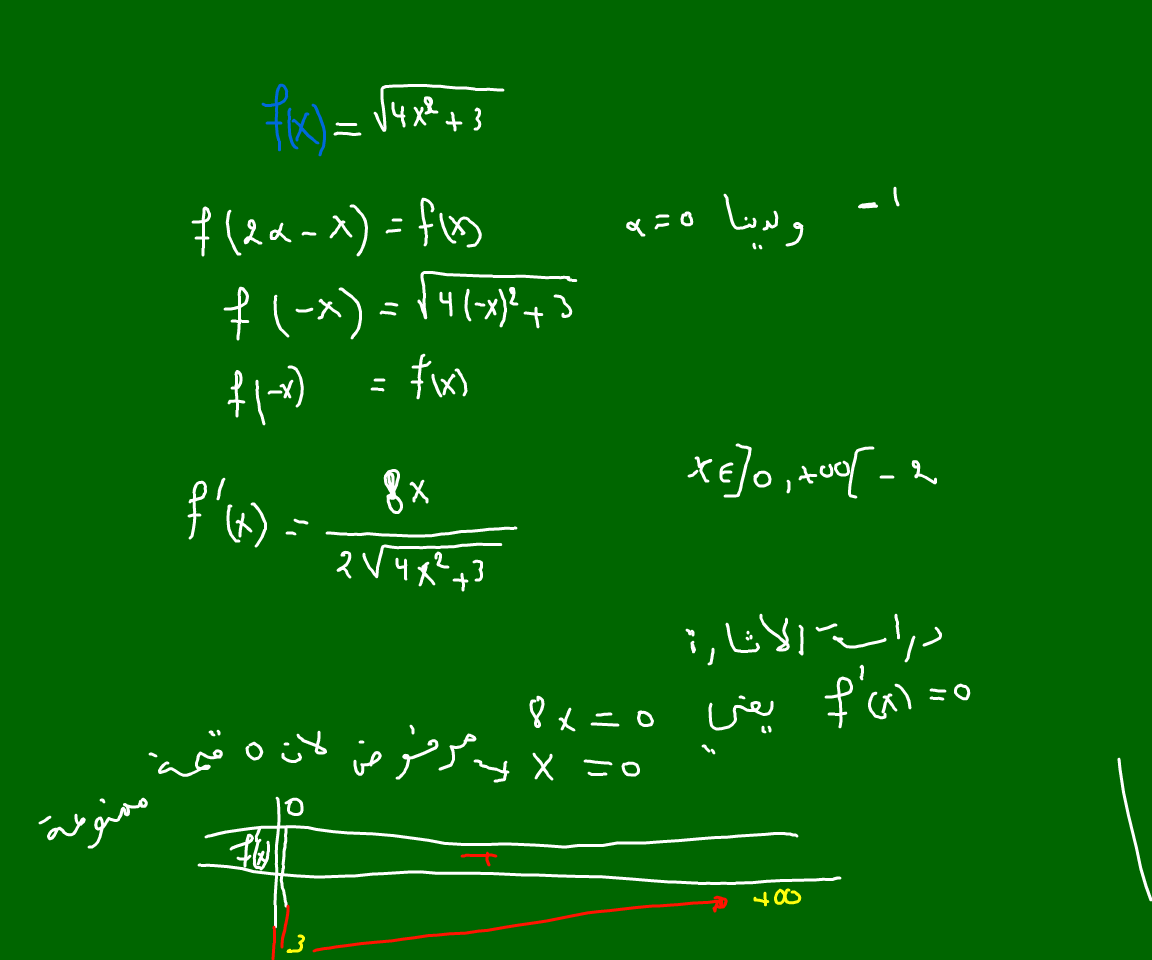 f(x) = √4x²+3
1- ولدينا α=0 f(2α-x) = f(x)
f(-x) = √4(-x)²+3
f(-x) = f(x)
2- x∈]0,+∞[
f'(x) = 8x / 2√4x²+3
دراسة الاشارة
f'(x)=0 يعني 8x=0
x=0 مرفوض لان 0 قيمة ممنوعة
0
f(x) +
3 +∞